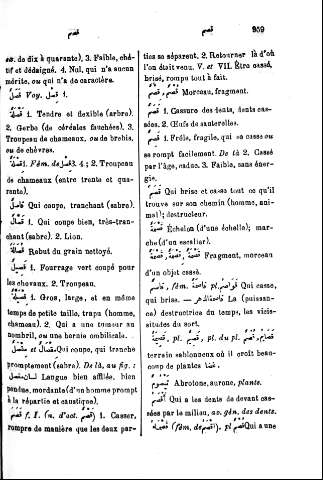 قصم
قصم
959
ou de dix à quarante). 3. Faible, ché-
tif et dédaigné. 4. Nul, qui n'a aucun
mérite, ou qui n'a aucun cas.
Voy. قصل 1.
1. Tendre et flexible (arbre).
2. Gerbe (de céréales fauchées). 3.
Troupeau de chameaux, ou de brebis,
ou de chèvres.
1. Fém. de قصل 3. 4; 2. Troupeau
de chameaux (entre trente et qua-
rante).
قاصل Qui coupe, tranchant (sabre).
قصال 1. Qui coupe bien, très-tran-
chant (sabre). 2. Lion.
قصالة Rebut du grain nettoyé.
قصيل 1. Fourrage vert coupé pour
les chevaux. 2. Troupeau.
1. Gros, large, et en même
temps de petite taille, trapu (homme,
chameau). 2. Qui a une tumeur au
nombril, ou une hernie ombilicale.
مقصل et مقصال Qui coupe, qui tranche
promptement (sabre). De là, au fig. :
لسان مقصل Langue bien affilée, bien
pendue, mordante (d'un homme prompt
à la répartie et caustique).
قصم f. I. (n. d'act. قصم) 1. Casser,
rompre de manière que les deux par-
ties se séparent. 2. Retourner là d'où
l'on était venu. V. et VII. Être cassé,
brisé, rompu tout à fait.
قصم, قصم Morceau, fragment.
قصم 1. Cassure des dents, dents cas-
sées. 2. Œufs de sauterelles.
قصم 1. Frêle, fragile, qui se casse ou
se rompt facilement. De là 2. Cassé
par l'âge, caduc. 3. Faible, sans éner-
gie.
قصم Qui brise et casse tout ce qu'il
trouve sur son chemin (homme, ani-
mal); destructeur.
قصمة Échelon (d'une échelle); mar-
che (d'un escalier).
قصمة, قصمة, قصمة Fragment, morceau
d'un objet cassé.
قاصم, fém. قاصمة pl. قواصم Qui casse,
qui brise. — La (puissan-
ce) destructrice du temps, les vicis-
situdes du sort.
قصيمة, pl. قصيم, pl. du pl. قصائم
terrain sablonneux où il croît beau-
coup de plantes غضا.
قيصوم Abrotone, aurone, plante.
أقصم Qui a les dents de devant cas-
sées par le milieu, av. gén. des dents.
(fém. de أقصم), pl. قصم Qui a une